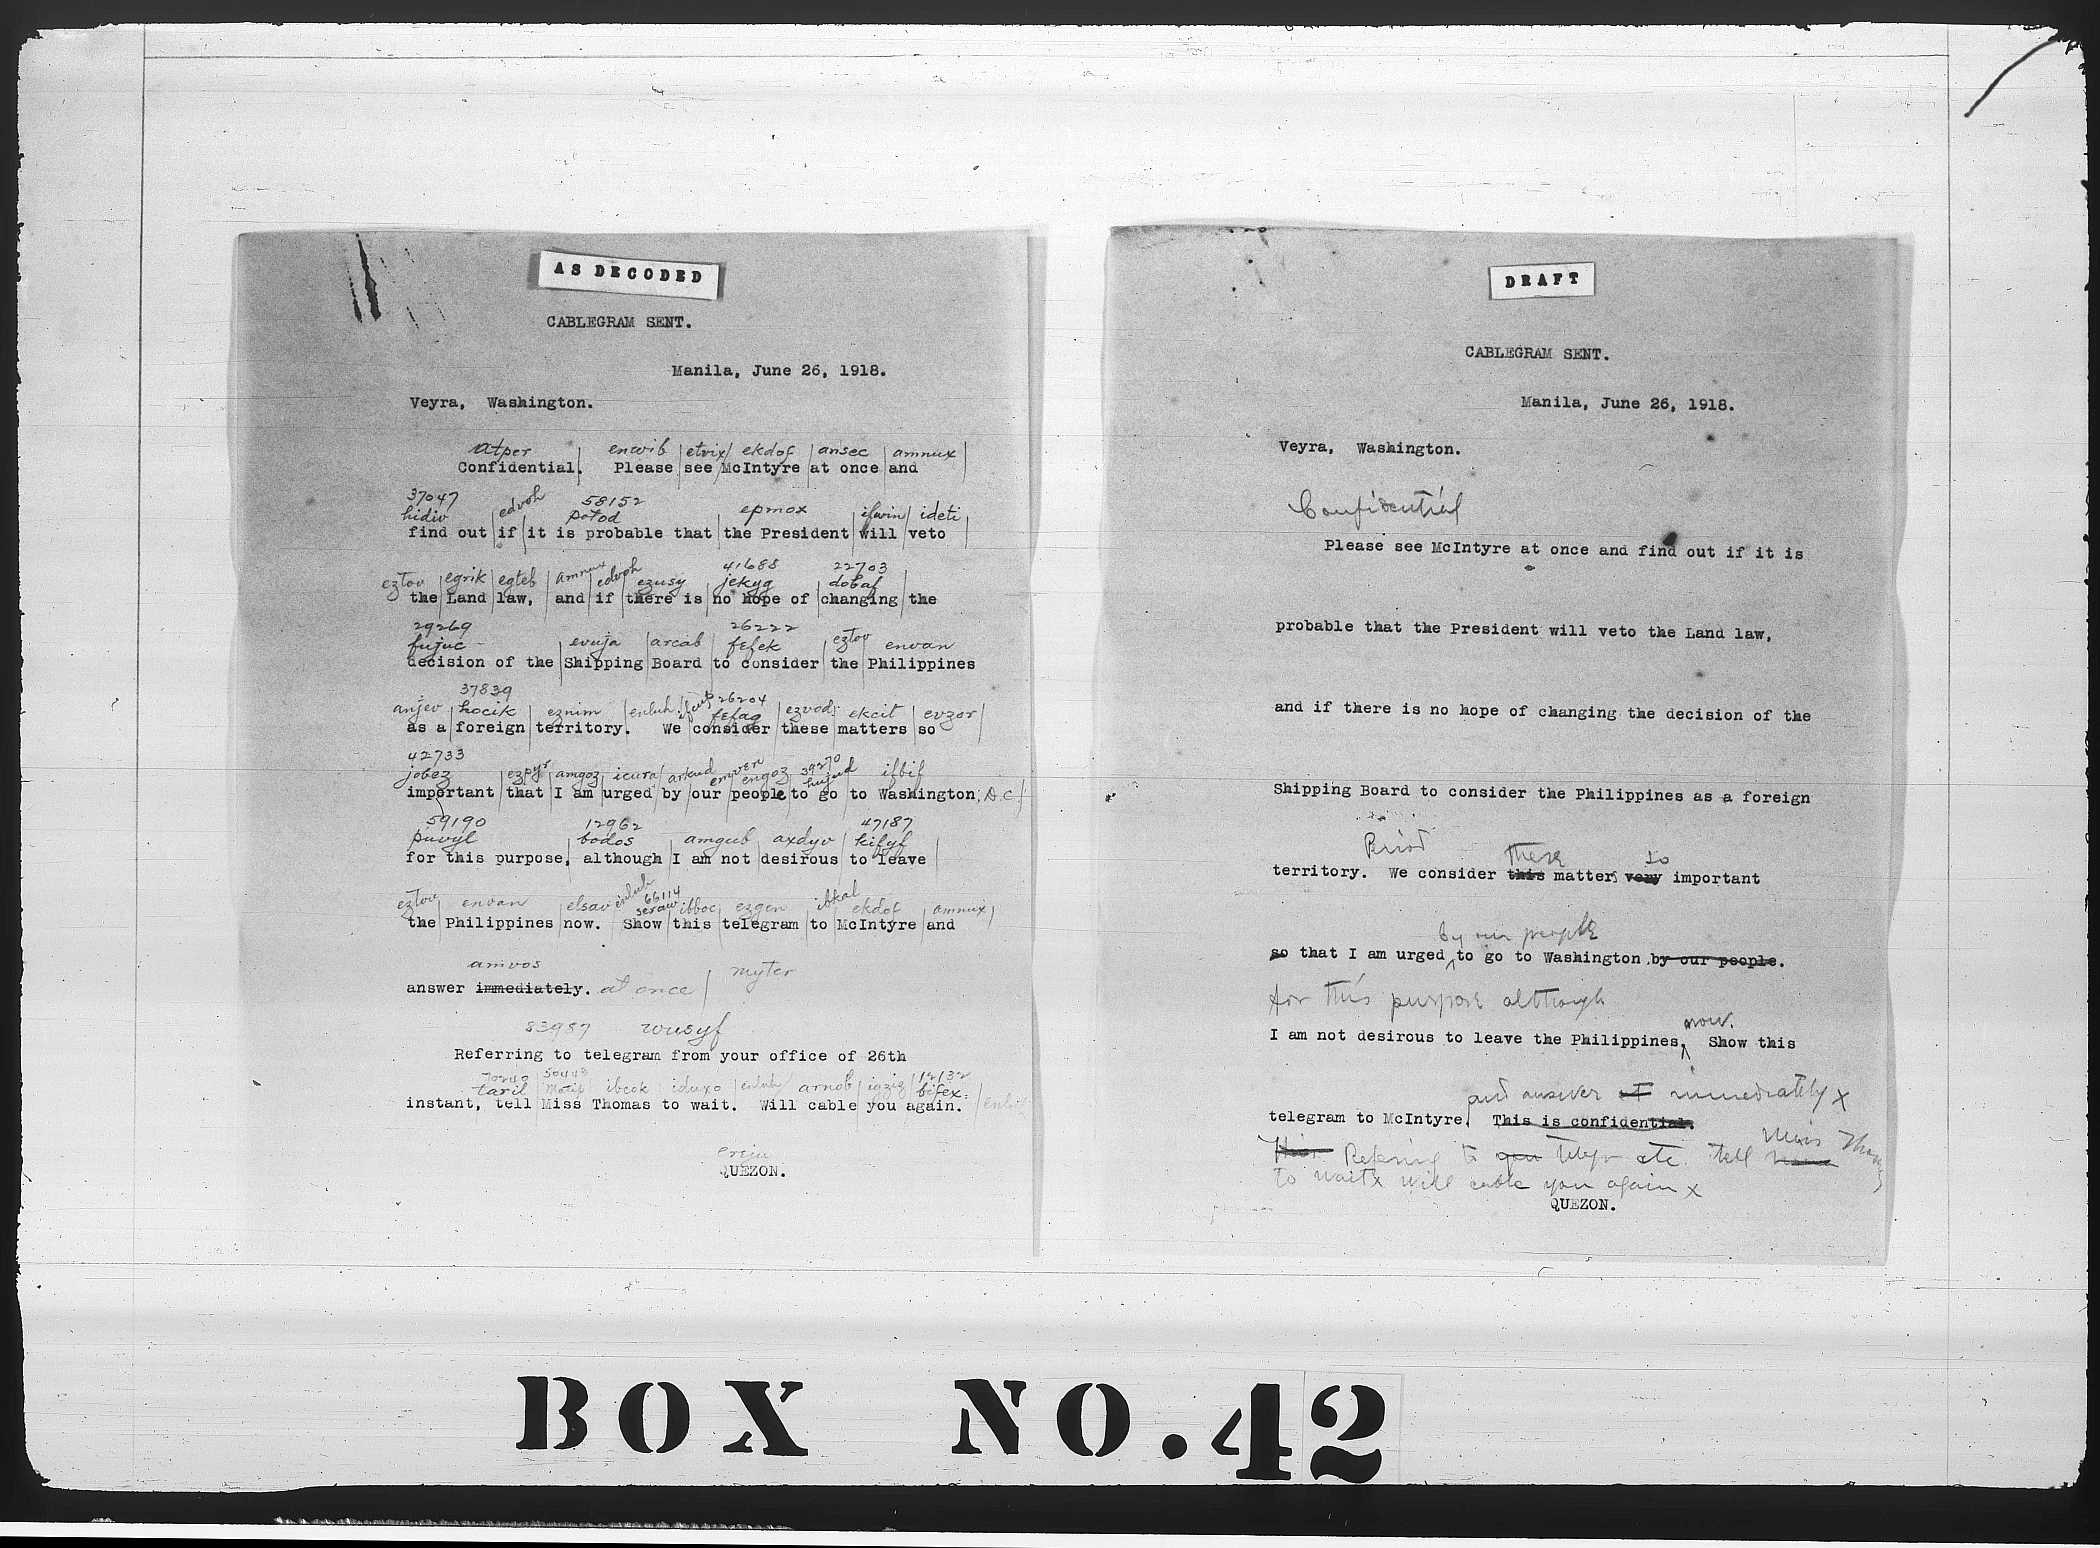 AS DECODED
CABLEGRAM SENT.
Manila, June 26, 1918.
Veyra, Washington.
atper enwib etvix ekdof ansec amnux
Confidential. Please see McIntyre at once and
37047 edvoh 58152
hidiv potod epmox ifwin ideti
find out if it is probable that the President will veto
41688 22703
eztov egrik egteb amnux edvoh ezusy jekyg dobaf
the Land law, and if there is no hope of changing the
29269 26222
fujuc evuja arcab fefek eztov envan
decision of the Shipping Board to consider the Philippines
37839 26204
anjev hocik eznim enluh fefag ezvod ekcit evzor
as a foreign territory. We consider these matters so
42733 39270
jobez ezpyr amgoz icura arkud emven engoz hujud ifbif
important that I am urged by our people to go to Washington, D.C.
59190 12962 47187
puvyl bodos amgub axdyv kifyf
for this purpose, although I am not desirous to leave
66114
eztov envan elsav enluh seraw ibboc ezgen ibkal ekdof amnux
the Philippines now. Show this telegram to McIntyre and
amvos
answer immediately. at once myter
83987 wusyf
Referring to telegram from your office of 26th
70240 50443 12132
taril motip ibcok iduxo enluh arnob igzig bifex
instant, tell Miss Thomas to wait. Will cable you again.
QUEZON.
DRAFT
CABLEGRAM SENT.
Manila, June 26, 1918.
Veyra, Washington.
Confidential
Please see McIntyre at once and find out if it is
probable that the President will veto the Land law,
and if there is no hope of changing the decision of the
Shipping Board to consider the Philippines as a foreign
Period these so
territory. We consider this matters very important
by our people
so that I am urged to go to Washington by our people.
for this purpose although
now.
I am not desirous to leave the Philippines. Show this
and answer immediately x
telegram to McIntyre. This is confidential.
Miss Thomas
Referring to your telegr etc. tell
to wait x will cable you again x
QUEZON.
BOX NO. 42